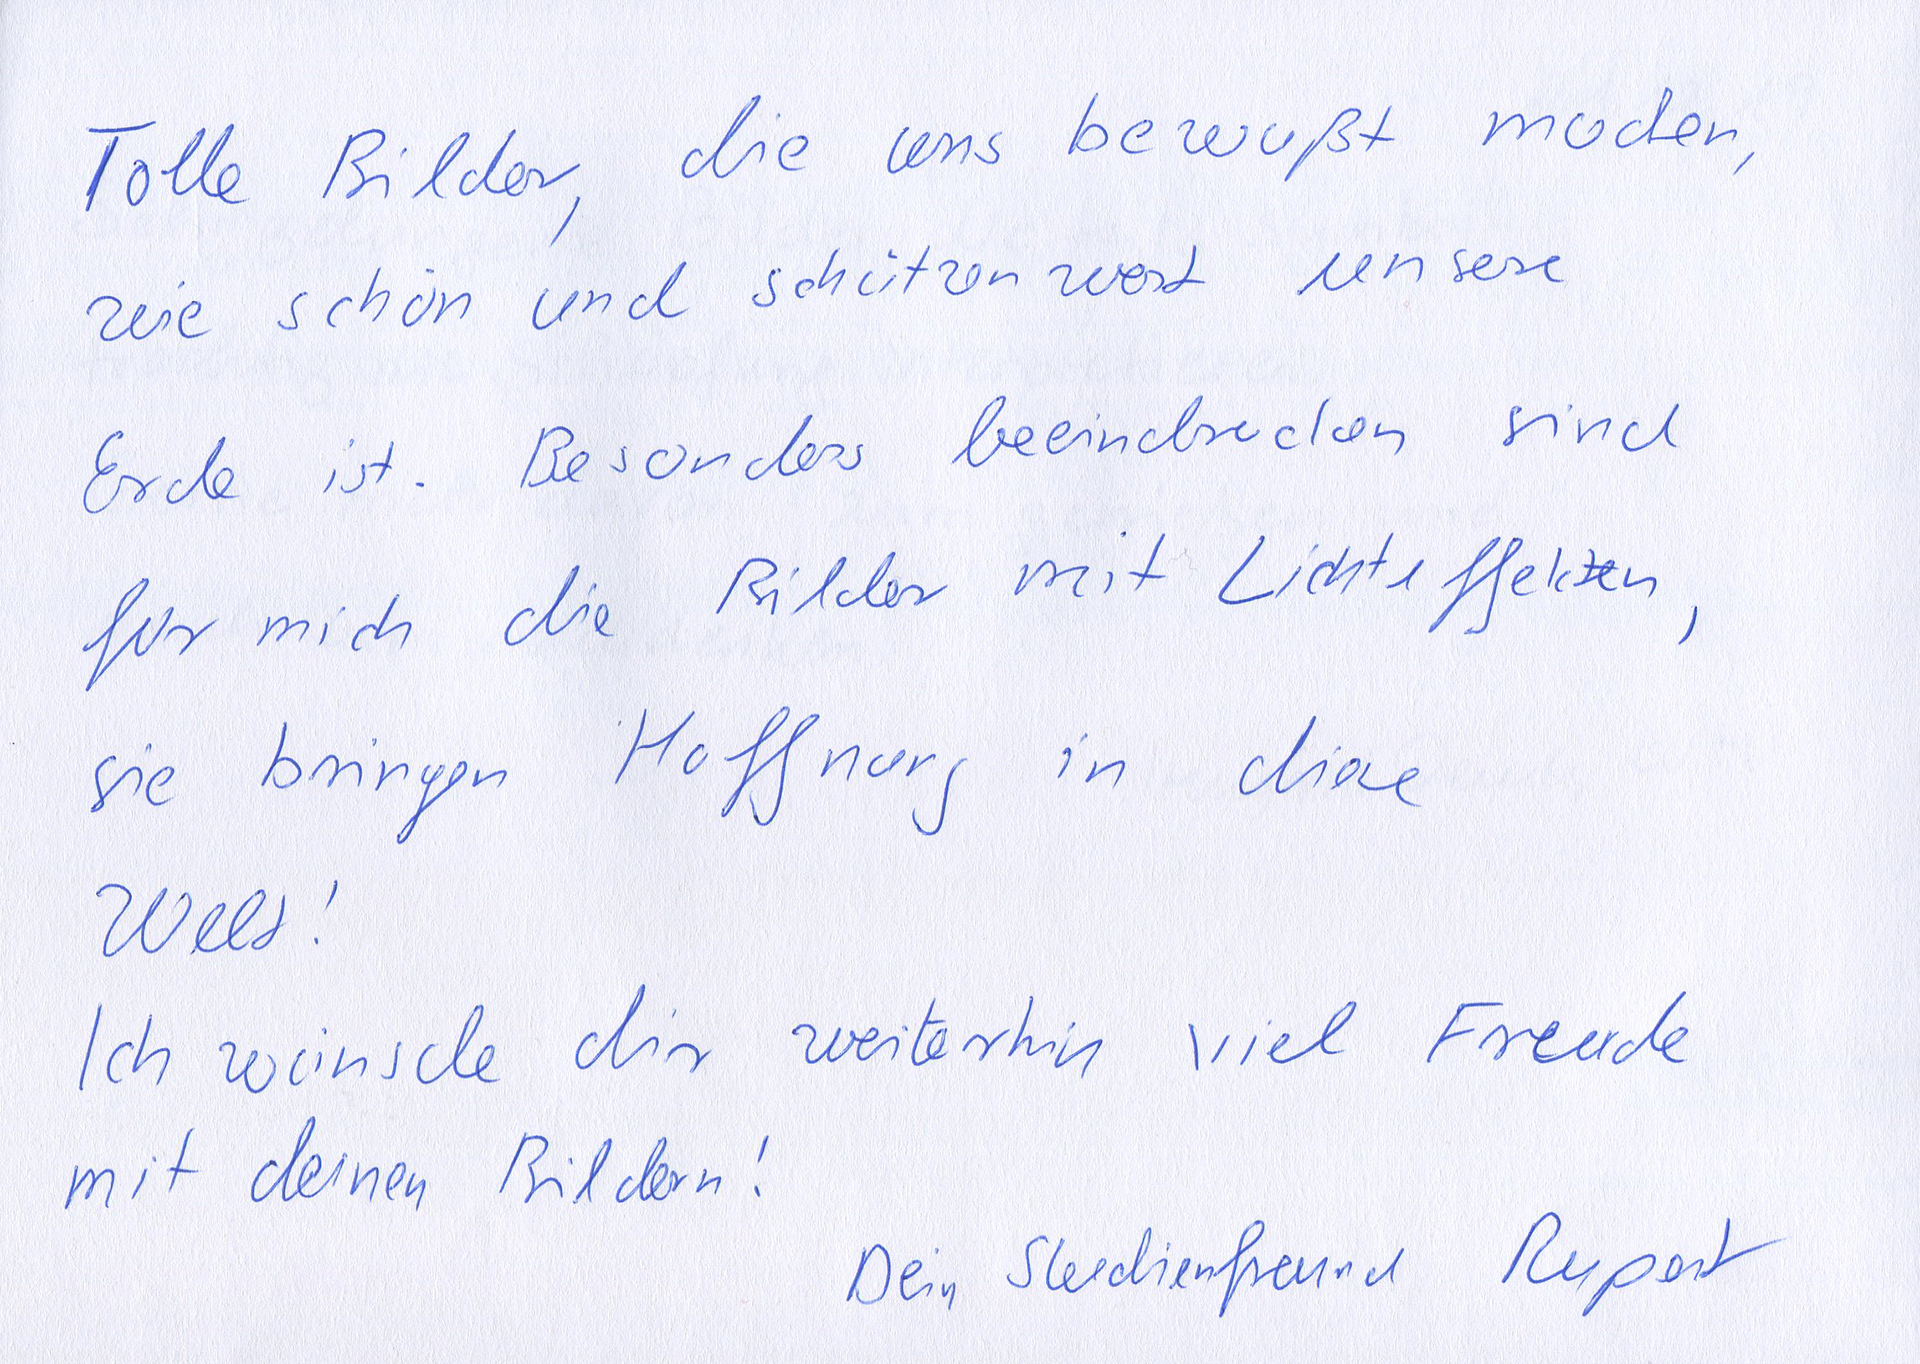 Tolle Bilder, die uns bewußt machen,
wie schön und schützenwert unsere
Erde ist. Besonders beeindrucken sind
für mich die Bilder mit Lichteffekten,
sie bringen Hoffnung in diese
Welt!
Ich wünsche dir weiterhin viel Freude
mit deinen Bildern!
Dein Studienfreund Rupert